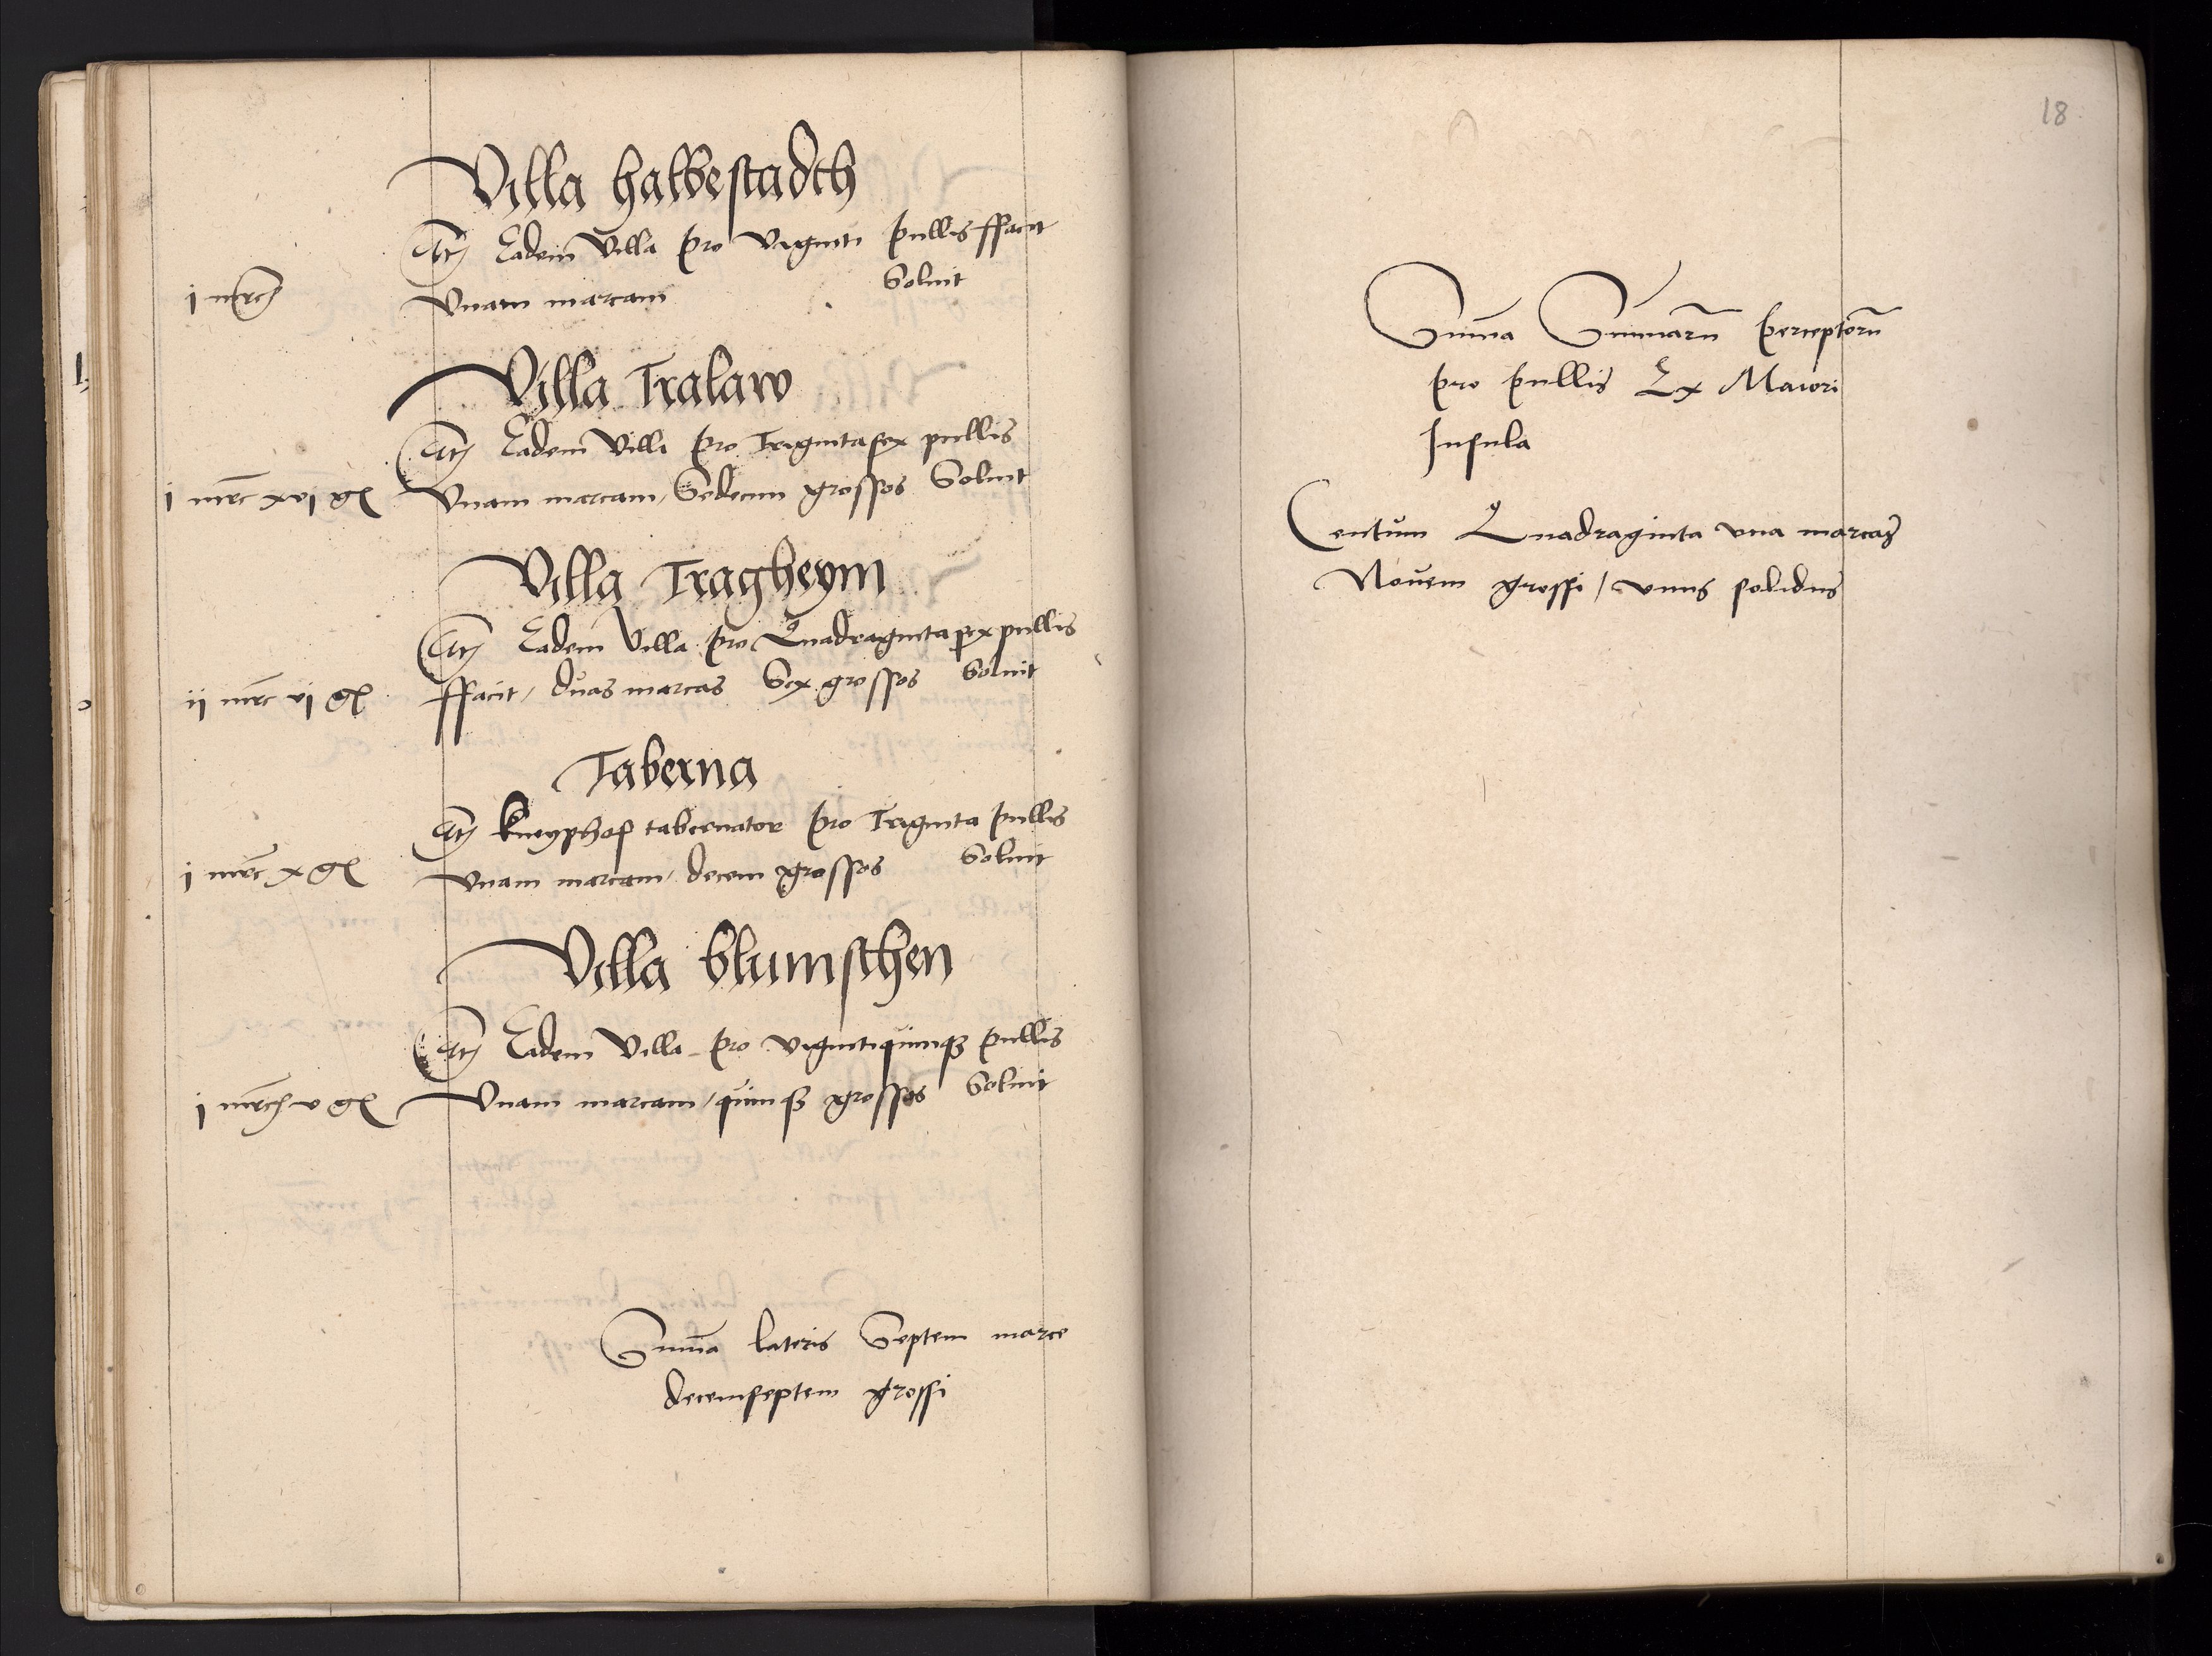 Villa halbestadth
It(em) Eadem Villa pro Viginti pullis ffacit
Soluit
j mrc Vnam marcam
Villa Tralaw
It(em) Eadem Villa pro Trigintasex pullis
j mrc xvj gr Vnam marcam / Sedecim grossos Soluit
Villa Tragheym
It(em) Eadem Villa pro Quadragintasex pullis
ij mrc vj gr ffacit / duas marcas Sex grossos Soluit
Taberna
It(em) kneyphof tabernator pro Triginta pullis
j mrc x gr Vnam marcam / decem grossos Soluit
Villa blumsthen
It(em) Eadem Villa pro vigintiquinqz pullis
j mrc v gr Vnam marcam / quinqz grossos Soluit
Suma lateris Septem marce
decemseptem grossi
18
Suma Sumarum perceptorum
pro pullis Ex Maiori
Insula
Centum Quadraginta vna marcas
Nouem grossi / vnus solidus